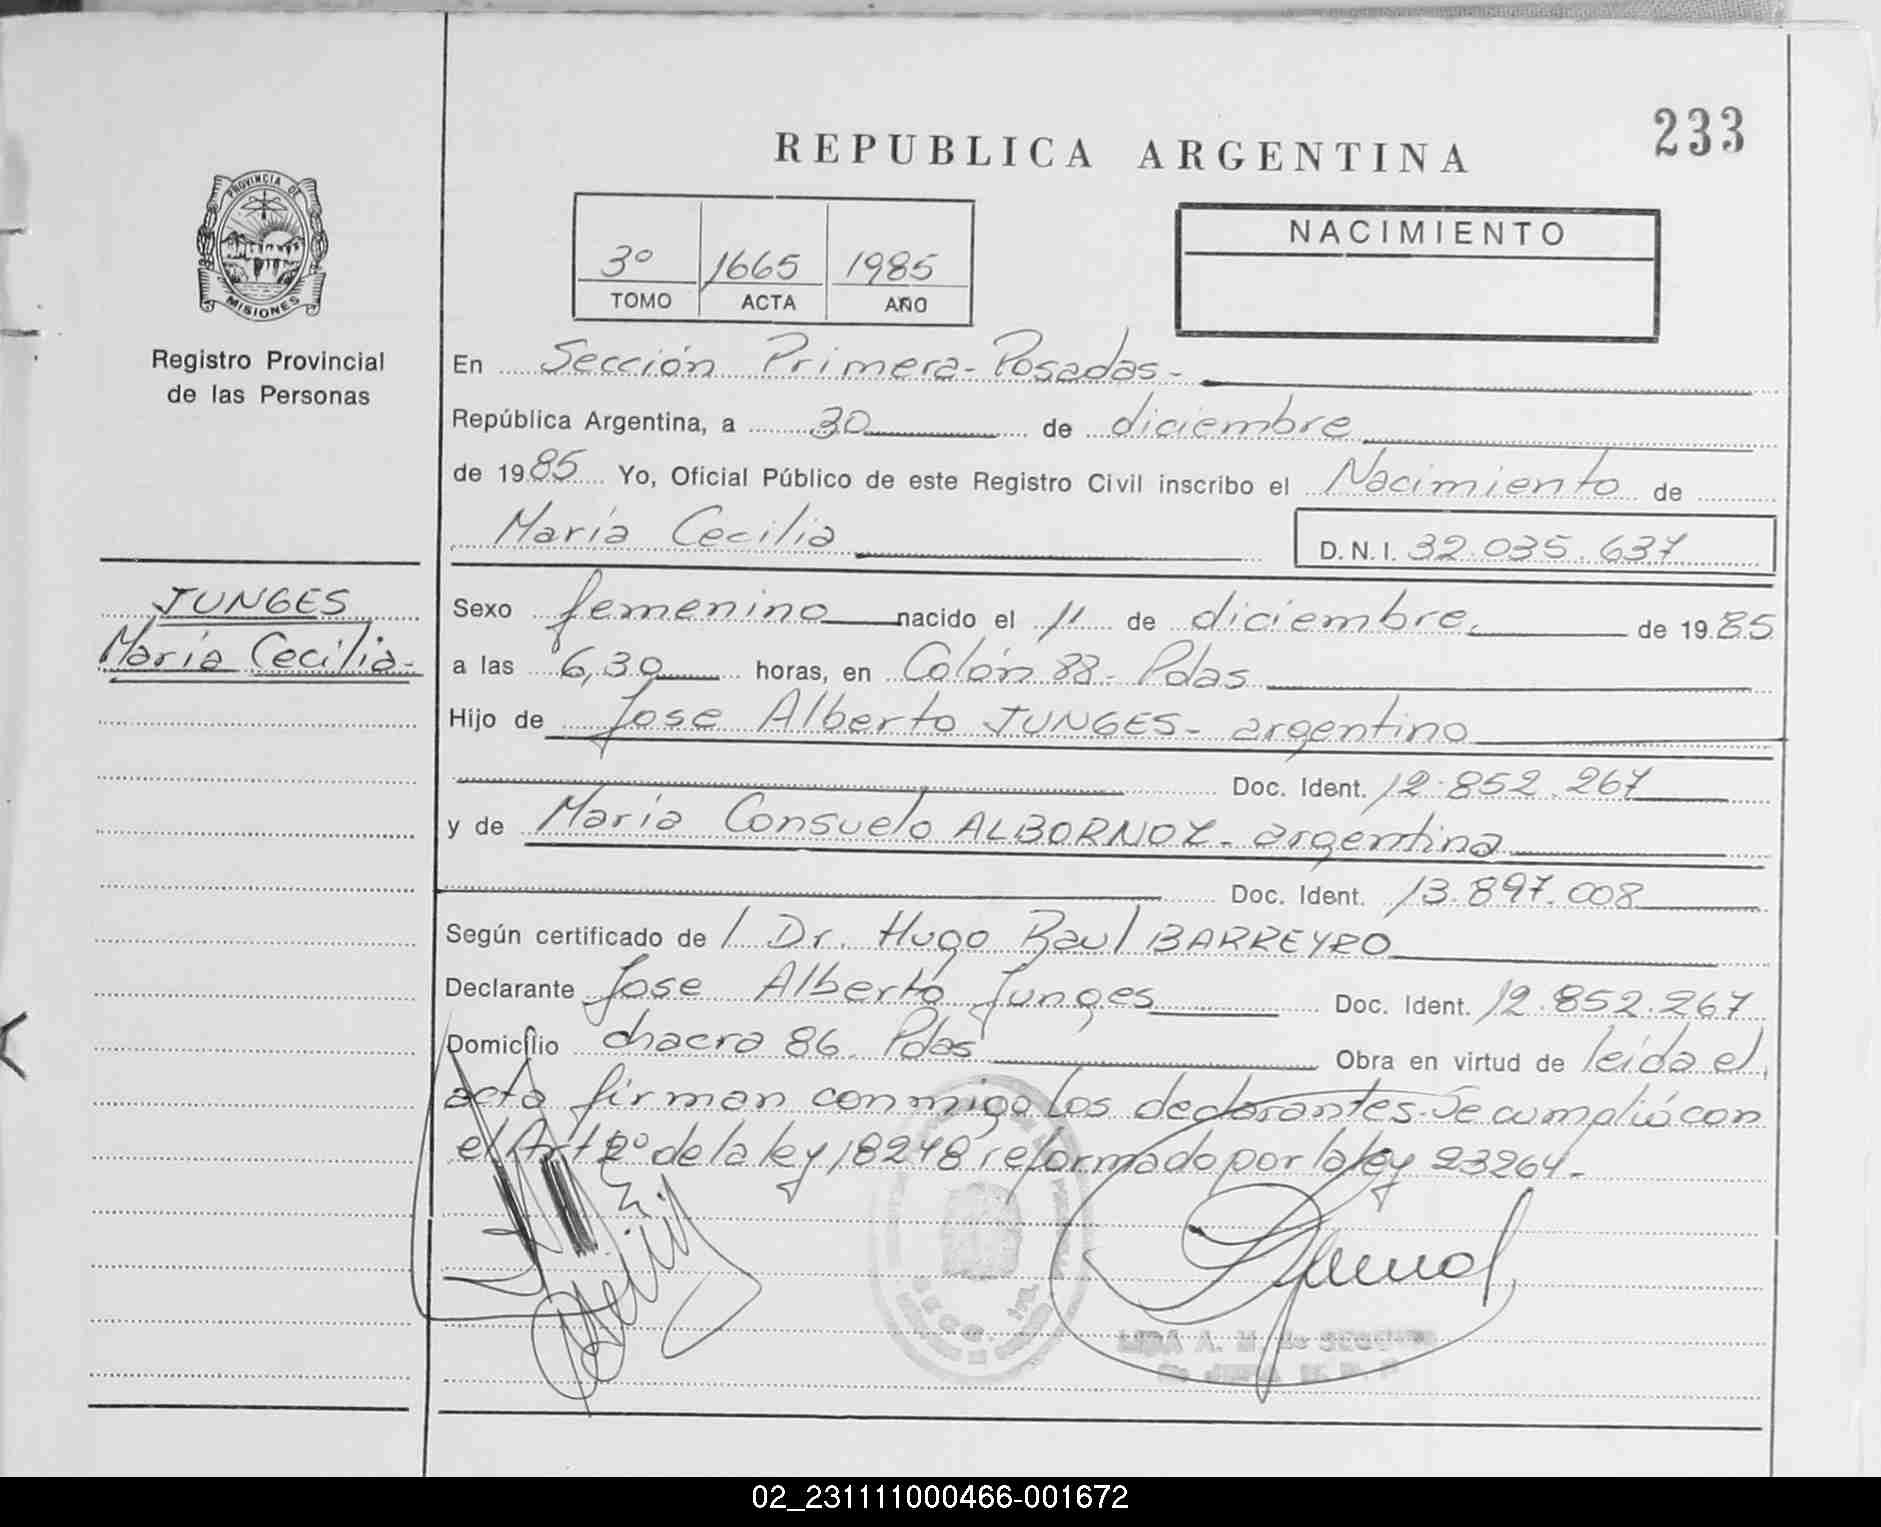 233
REPUBLICA ARGENTINA
PROVINCIA DE
MISIONES
Registro Provincial
de las Personas
3º 1665 1985
TOMO ACTA AÑO
NACIMIENTO
En Sección Primera - Posadas -
República Argentina, a 30 de diciembre
de 1985 Yo, Oficial Público de este Registro Civil inscribo el Nacimiento de
María Cecilia
D.N.I. 32.035.637
JUNGES
María Cecilia -
Sexo femenino nacido el 11 de diciembre. de 1985
a las 6,30 horas, en Colón 88 - Pdas
Hijo de Jose Alberto JUNGES - argentino
Doc. Ident. 12.852.267
y de María Consuelo ALBORNOZ - argentina
Doc. Ident. 13.897.008
Según certificado de l Dr. Hugo Raul BARREYRO
Declarante Jose Alberto Junges Doc. Ident. 12.852.267
Domicilio chacra 86. Pdas Obra en virtud de leida el
acta firman conmigo los declarantes. Se cumplió con
el Art 2º de la ley 18248 reformado por la ley 23264 -
02_231111000466-001672